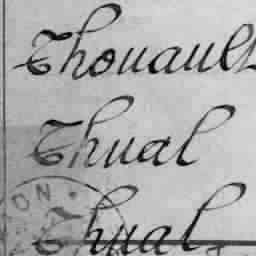 Thouault
Thual
Thual
ON